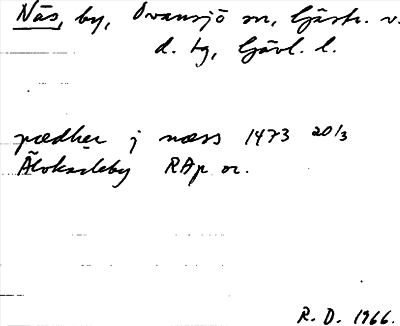 Näs, by, Ovansjö sn, Gästr. v.
d. tg, Gävl. l.
pædher j næss 1473 20/3
Älvkarleby RAp or.
R. D. 1966.